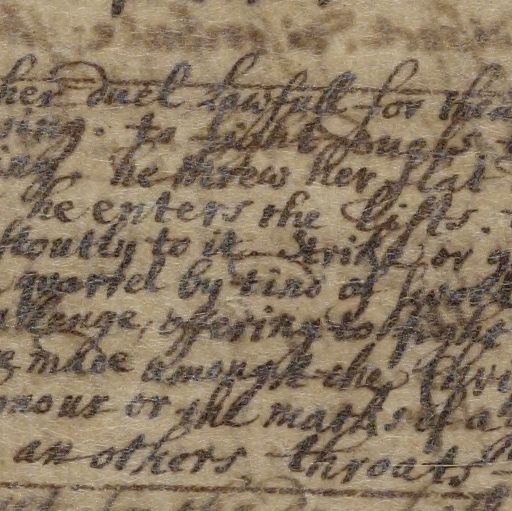 her duel lawfull for thea
ing. to fight
ing he threw her flat
he enters the lists.
stoutly to it. strike or
quarrel by dint of sword
allenge, offering to fight
made amongst the thre
nour or the marks of a
an others throats